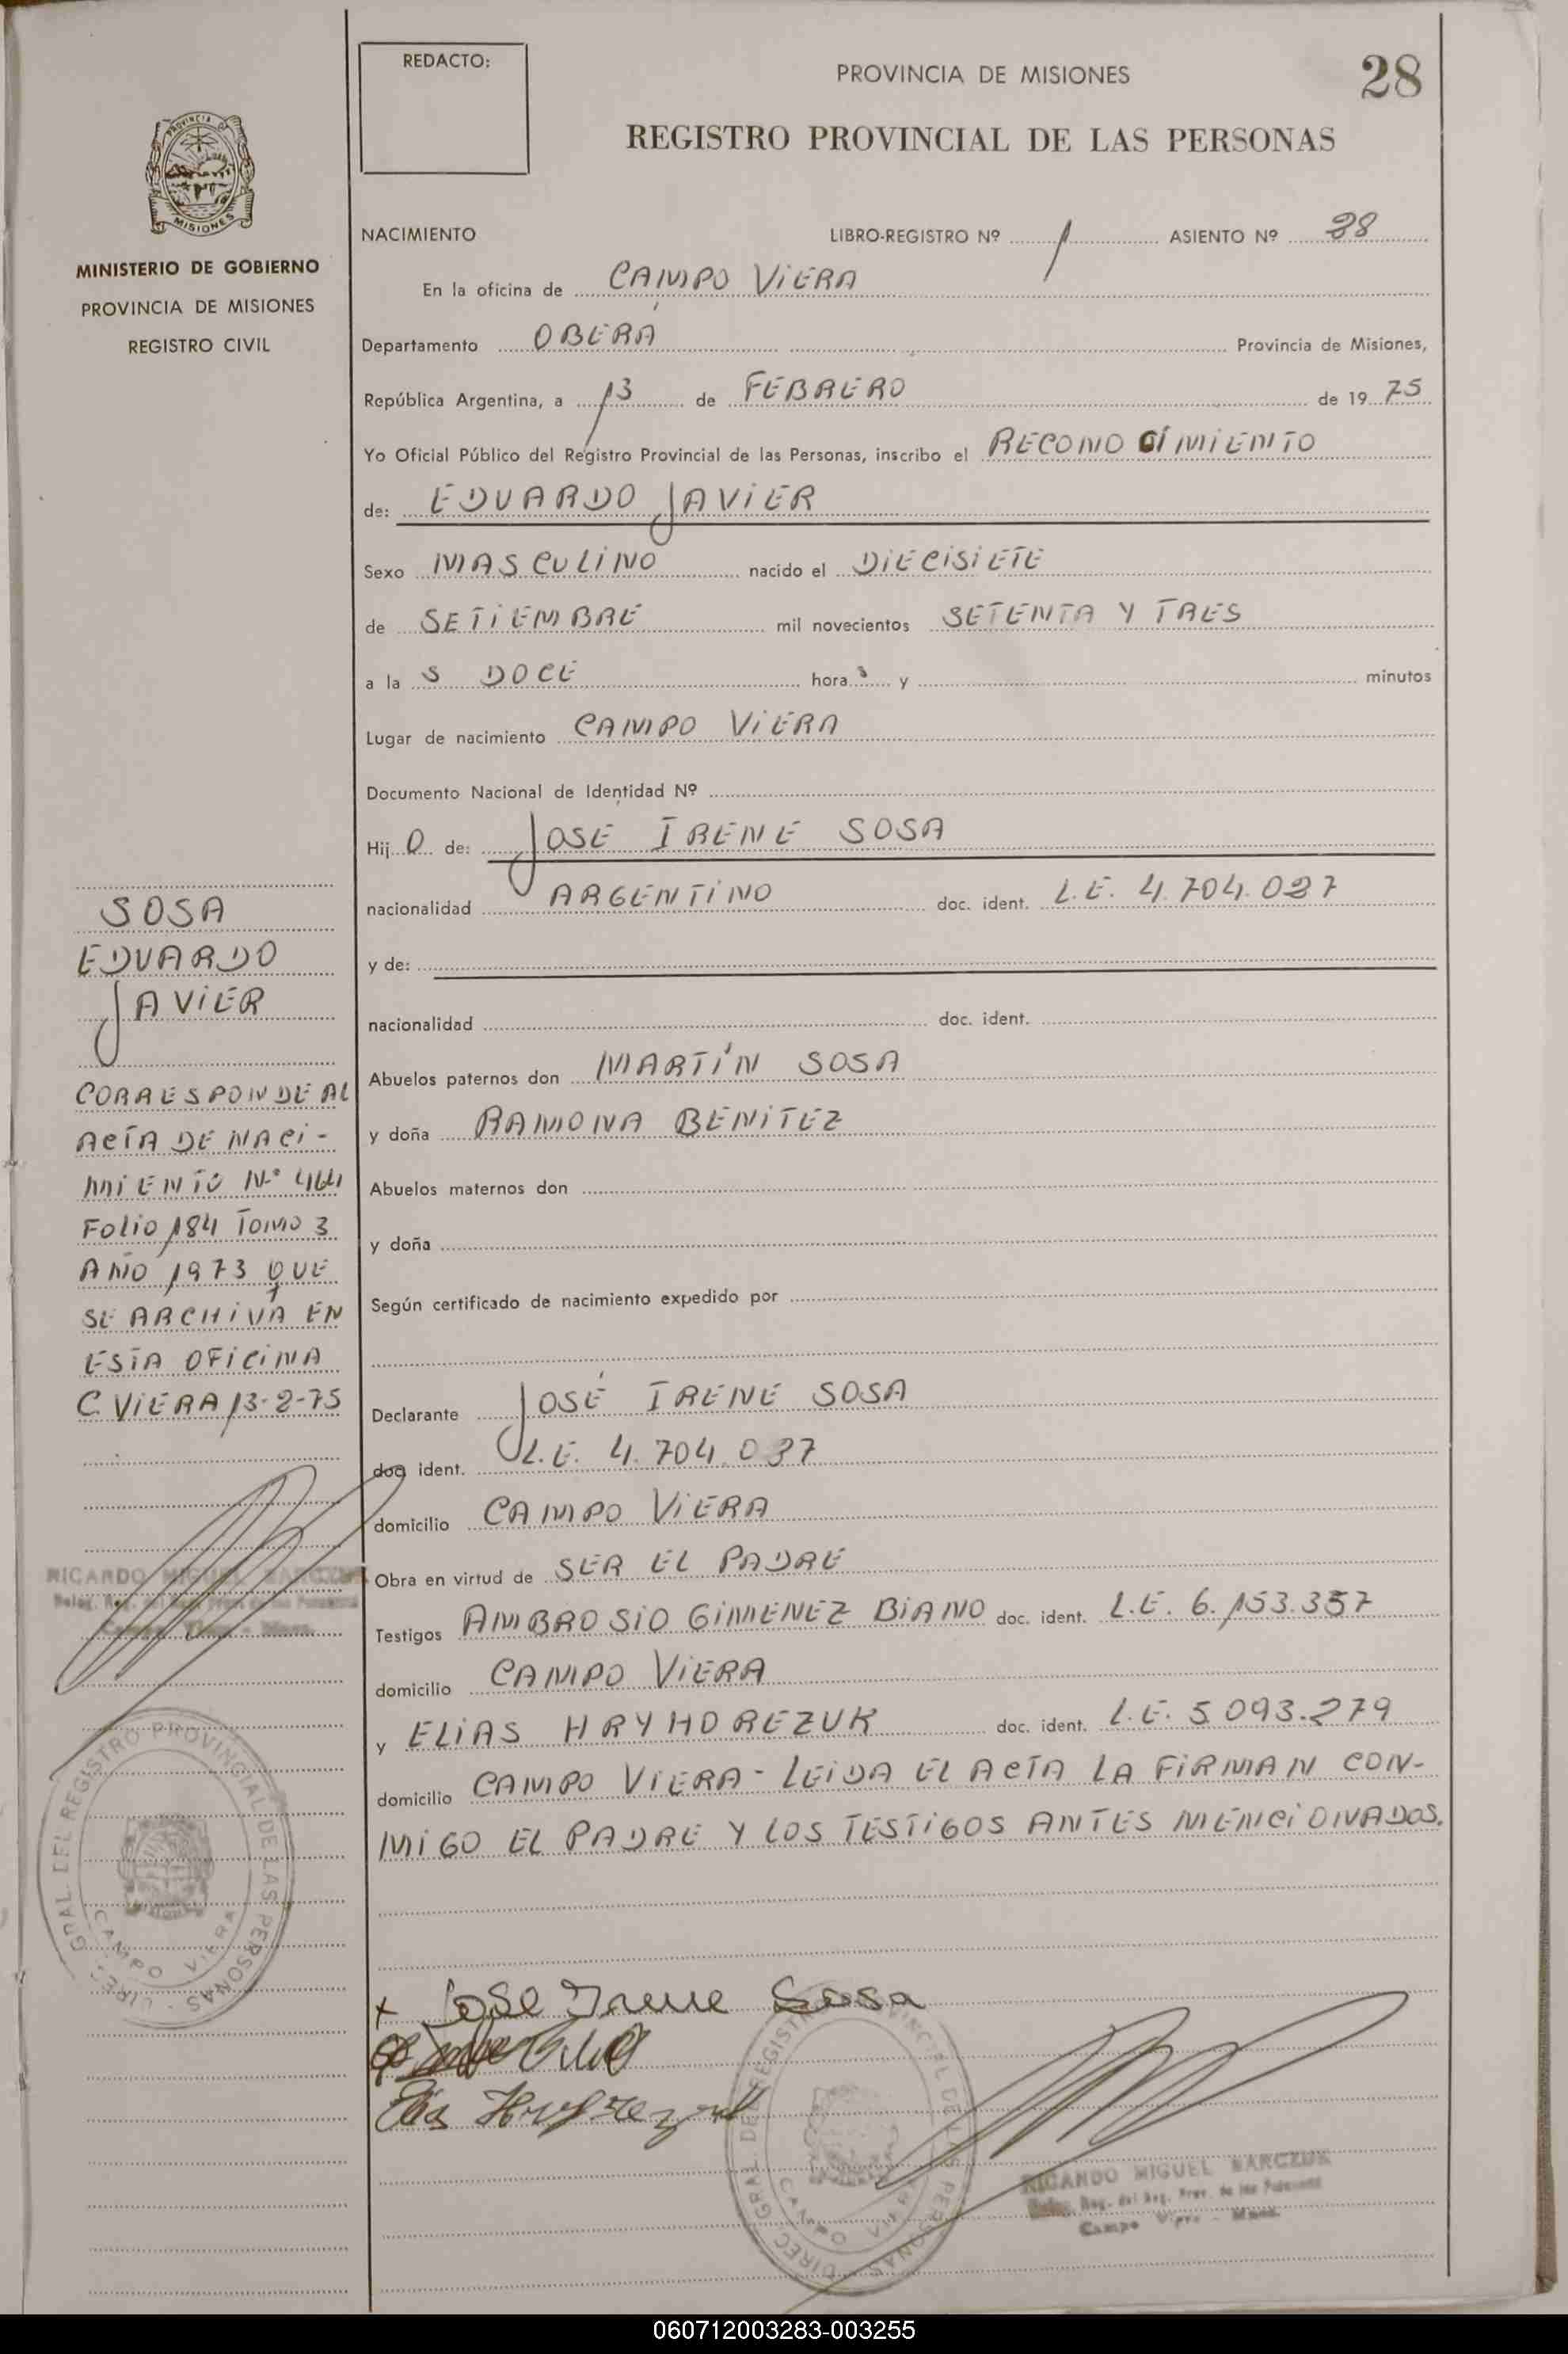 REDACTO:
PROVINCIA DE MISIONES
28
REGISTRO PROVINCIAL DE LAS PERSONAS
PROVINCIA DE
MISIONES
MINISTERIO DE GOBIERNO
PROVINCIA DE MISIONES
REGISTRO CIVIL
NACIMIENTO LIBRO-REGISTRO Nº 1 ASIENTO Nº 28
En la oficina de CAMPO VIERA
Departamento OBERÁ Provincia de Misiones,
República Argentina, a 13 de FEBRERO de 1975
Yo Oficial Público del Registro Provincial de las Personas, inscribo el RECONOCIMIENTO
de: EDUARDO JAVIER
Sexo MASCULINO nacido el DIECISIETE
de SETIEMBRE mil novecientos SETENTA Y TRES
a la S DOCE hora s y minutos
Lugar de nacimiento CAMPO VIERA
Documento Nacional de Identidad Nº
Hij O de: JOSÉ IRENE SOSA
nacionalidad ARGENTINO doc. ident. L.E. 4.704.027
y de:
nacionalidad doc. ident.
Abuelos paternos don MARTÍN SOSA
y doña RAMONA BENITEZ
Abuelos maternos don
y doña
Según certificado de nacimiento expedido por
Declarante JOSÉ IRENE SOSA
doc. ident. L.E. 4.704.037
domicilio CAMPO VIERA
Obra en virtud de SER EL PADRE
Testigos AMBROSIO GIMENEZ BIANO doc. ident. L.E. 6.153.357
domicilio CAMPO VIERA
y ELIAS HRYHOREZUK doc. ident. L.E. 5.093.279
domicilio CAMPO VIERA - LEIDA EL ACTA LA FIRMAN CON-
MIGO EL PADRE Y LOS TESTIGOS ANTES MENCIONADOS.
SOSA
EDUARDO
JAVIER
CORRESPONDE AL
ACTA DE NACI-
MIENTO Nº 464
FOLIO 184 TOMO 3
AÑO 1973 QUE
SE ARCHIVA EN
ESTA OFICINA
C. VIERA 13-2-75
RICARDO MIGUEL BARCZUK
DIREC. GRAL. DEL REGISTRO PROVINCIAL DE LAS PERSONAS
CAMPO VIERA
x José Irene Sosa
Elias
DIREC. GRAL. DEL REGISTRO PROVINCIAL DE LAS PERSONAS
CAMPO VIERA
RICARDO MIGUEL BARCZUK
Deleg. Reg. del Reg. Prov. de las Personas
Campo Viera - Mnes.
060712003283-003255